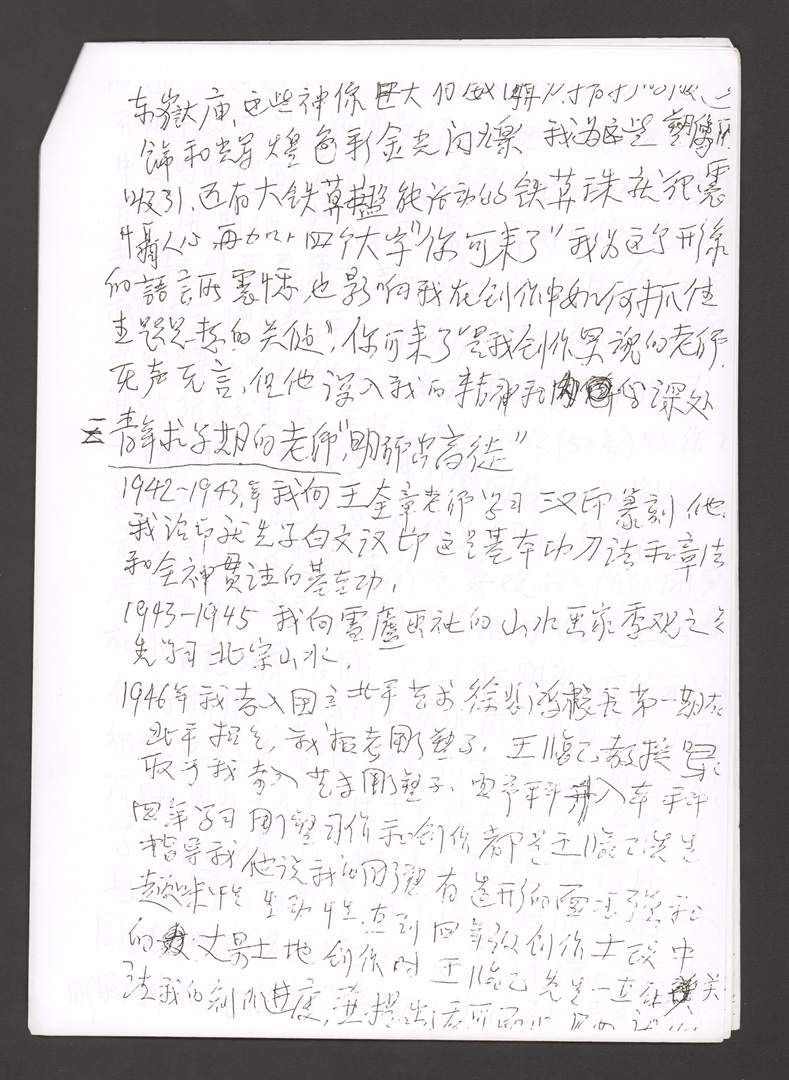 东嶽庙,这些神像巨大的
饰和辉煌色彩金光闪烁 我为这些塑像所
吸引,还有大铁算盤能活动的铁算珠就很震
慑人心再加以四个大字"你可来了"我为这个形象
的語言所震憾也影响我在创作中如何抓住
主题思想的关键",你可来了"是我创作累说的老师.
无声无言,但他深入我的精神和内心深处
二 青年求学期的老师"明师出高徒"
1942-1943,年我向王奎章老师学习 汉印篆刻 他
我治印就先学白文汉印 这是基本功刀法和章法
和全神贯注的基本功,
1943-1945 我向雪廬画社的山水画家季观之
先 学习北宗山水,
1946年我考入国立北平艺术 徐悲鸿校長第一期在
北平招生,我报考雕塑系,王临乙教授
取了我考入艺专雕塑系、由予科升入本科
四年学习雕塑习作和创作都是王临乙先生
指导我他说我的雕塑有造形的
趣味性 生动性 直到四年级创作土改中
的 丈量土地 创作时王临乙先生一直在 关
注我的创作进度,並提出